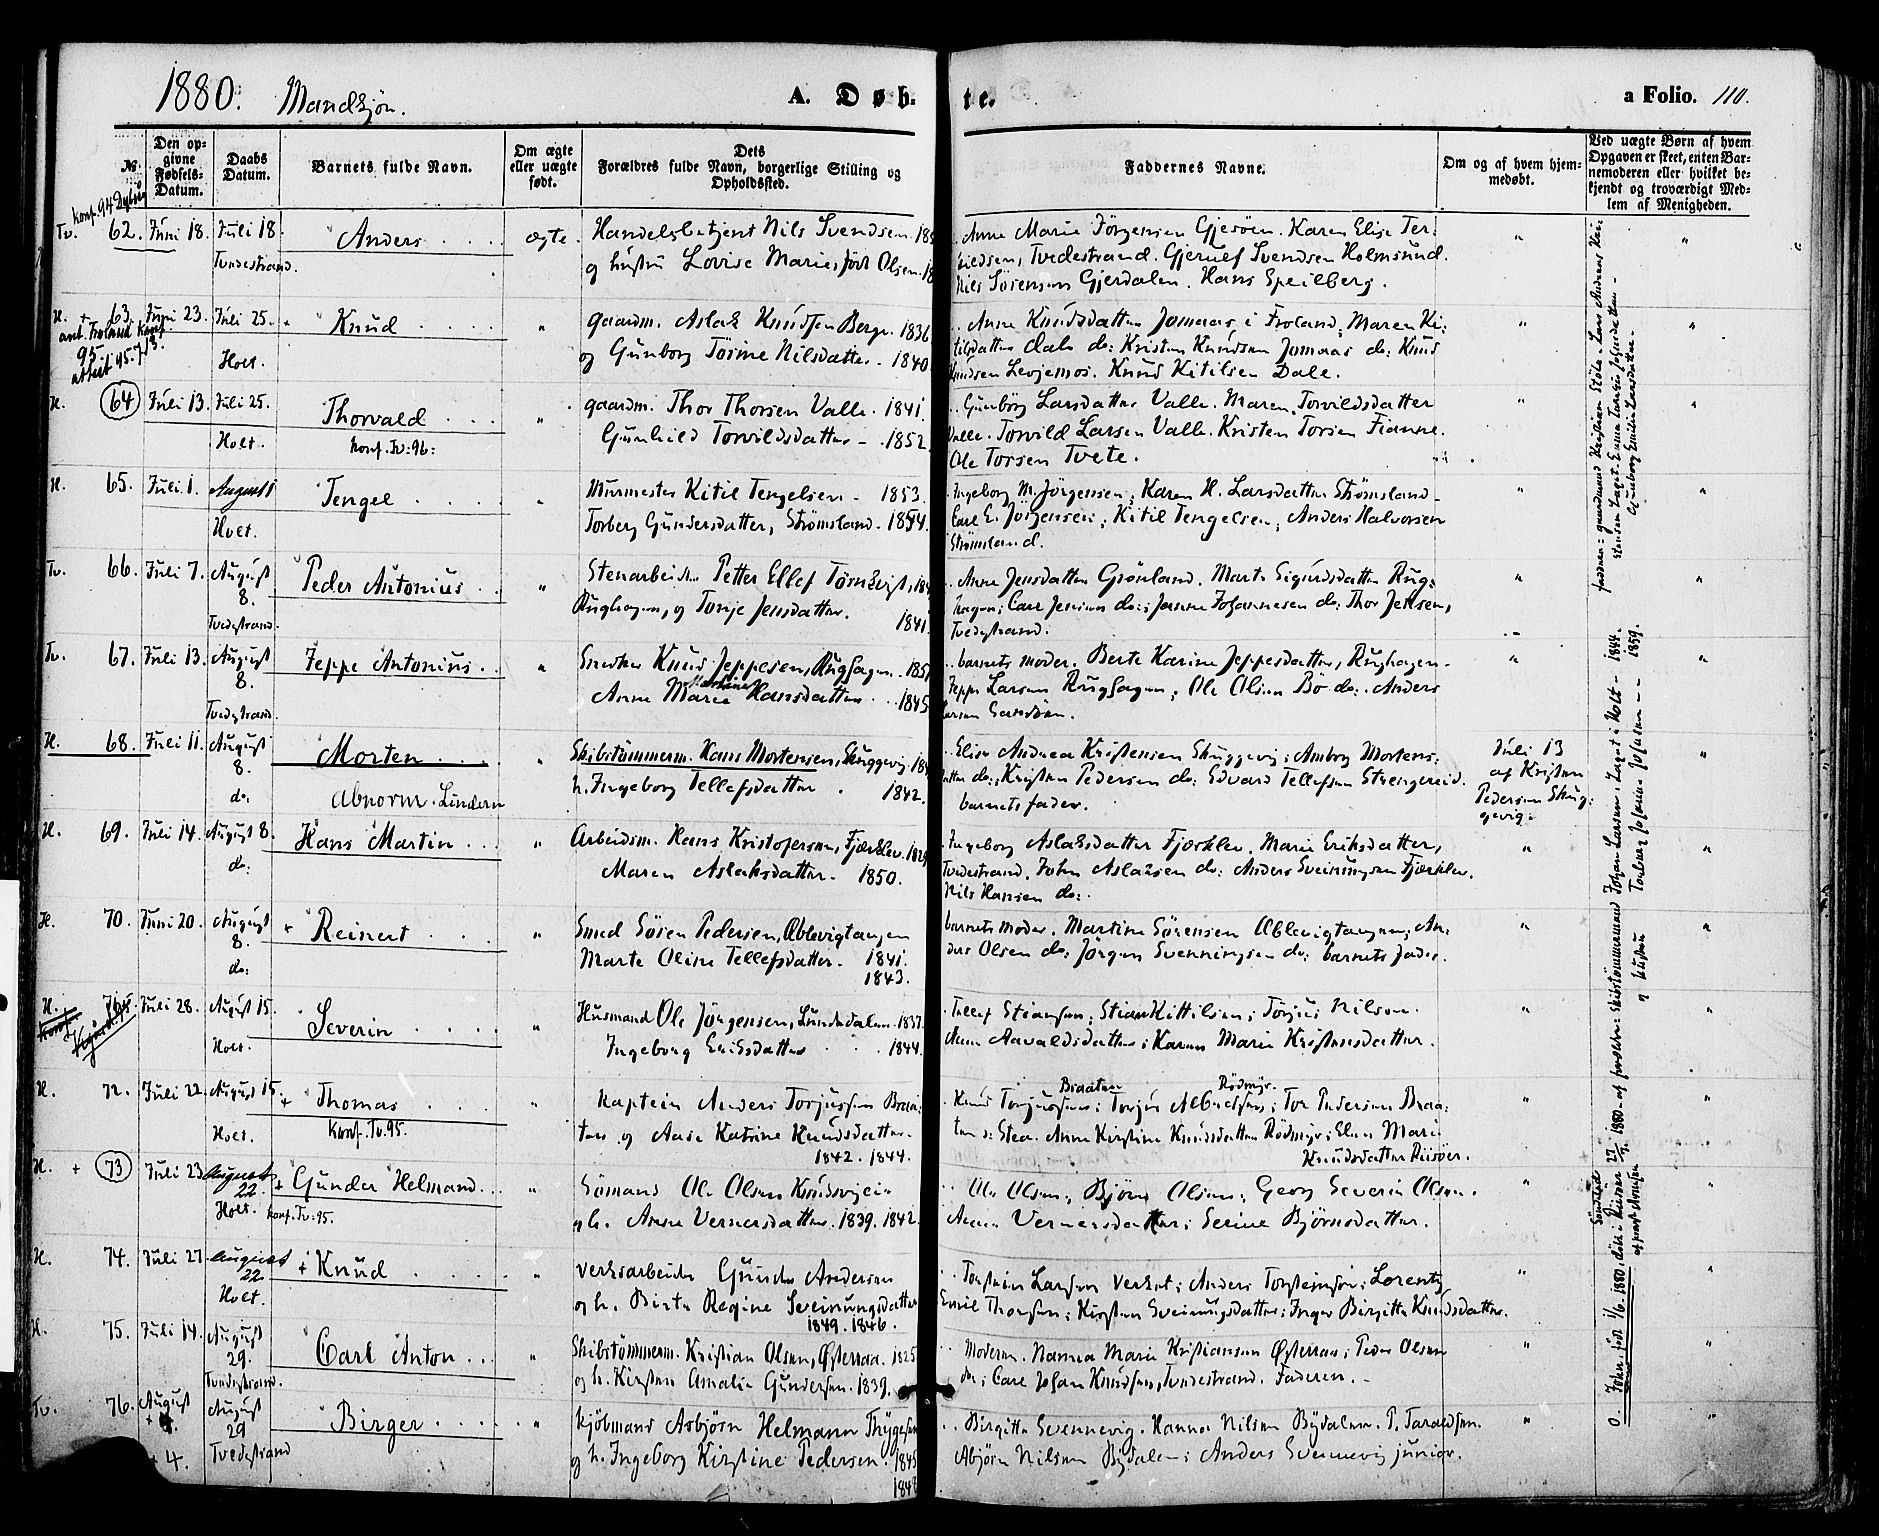 1880. Mandkjøn.
A. Døbte.
a Folio. 110.
№
Den opgivne Fødsels-Datum.
Daabs Datum.
Barnets fulde Navn.
Om ægte eller uægte født.
Dets Forældres fulde Navn, borgerlige Stilling og Opholdssted.
Faddernes Navne.
Om og af hvem hjemmedøbt.
Ved uægte Børn af hvem Opgaven er skeet, enten Barnemoderen eller hvilket bekjendt og troværdigt Medlem af Menigheden.
Tv. 62. Juni 18. Juli 18 Anders ægte. Handelsbetjent Nils Svendsen
Tvedestrand. og hustru Lovise Marie, født Olsen.
Anne Marie Jørgensen Gjesøen. Karen Elise Ter-
kildsen, Tvedestrand. Gjerulf Svendsen Holmsund.
Nils Sørensen Gjerdalen. Hans Speilberg.
H. 63. Juni 23. Juli 25. Knud " gaardm. Aslak Knudsen Berge 1836
Holt. og Gunborg Tørine Nilsdatter 1840
Anne Knudsdatter Jomaas i Froland, Maren Ki-
tilsdatter Dale do: Kristen Knudsen Jomaas do: Knud
Knudsen Levjemos. Knud Kitilsen Dale.
H. 64 Juli 13. Juli 25. Thorvald " gaardm. Thor Thorsen Valle. 1841.
Holt. Konf. Tv: 96: Gunhild Torvildsdatter 1852
Gunborg Larsdatter Valle. Maren Torvildsdatter
Valle. Torvild Larsen Valle. Kristen Torsen Fianne.
Ole Torsen Tvete.
H. 65. Juli 1. August 1 Tengel " Murmester Kitil Tengelsen 1853.
Holt. Torberg Gundersdatter, Strømsland. 1854.
Ingeborg M. Jørgensen, Karen H. Larsdatter Strømsland
Carl E. Jørgensen, Kitil Tengelsen, Anders Halvorsen
Strømsland.
Tv. 66. Juli 7. August 8. Peder Antonius " Stenarbeider Petter Ellef Tørnkvist,
Tvedestrand. Rughagen, og Tonje Jensdatter. 1841.
Anne Jensdatter Grønland. Marte Sigurdsdatter Rug-
hagen; Carl Jensen do:; Janne Johannesen do: Thor Jensen,
Tvedestrand.
Tv. 67. Juli 13. August 8. Jeppe Antonius " Snedker Knud Jeppesen, Rughagen. 1851
Tvedestrand. Anne Marie Hansdatter 1845
barnets moder. Berte Karine Jeppesdatter, Rughagen
Jeppe Larsen Rughagen; Ole Olsen Bø do: Anders
Larsen Sandøen.
H. 68. Juli 11. August 8. Morten " Skibstømmerm. Hans Mortensen, Skuggevig
do: Abnorm. Lindern h. Ingeborg Tellefsdatter 1842.
Elise Andrea Kristensen Skuggevig; Amborg Mortens-
datter do:; Kristen Pedersen do: Edvard Tellefsen Strengereid.
barnets fader.
Juli 13
af Kristen
Pedersen Skug-
gevig.
H. 69. Juli 14. August 8. Hans Martin " Arbeidsm. Hans Kristofersen, Fjærklev. 1829
do: Maren Aslaksdatter. 1850.
Ingeborg Aslaksdatter Fjærklev. Marie Eriksdatter,
Tvedestrand. John Aslaksen do: Anders Sveinungsen Fjærklev.
Nils Hansen do:
H. 70. Juni 20. August 8. Reinert " Smed Søren Pedersen, Ablevigtangen
do: Marte Oline Tellefsdatter. 1841. 1843.
barnets moder. Martine Sørensen Ablevigtangen; An-
ders Olsen do: Jørgen Svenningsen do: barnets fader.
H. Juli 28. August 15. Severin " Husmand Ole Jørgensen, Lundedalen. 1837.
Holt. Ingeborg Eriksdatter 1844.
Tellef Stiansen; Stian Kittilsen; Torjus Nilsen.
Anne Aavaldsdatter; Karen Marie Kristensdatter.
H. 72. Juli 22. August 15. Thomas " Kaptein Anders Torjussen Braa-
Holt. Konf. Tv. 95. ten og Aase Katrine Knudsdatter 1842. 1844.
Knud Torjussen Braaten; Torjus Albudsen Rødmyr; Tor Pedersen Braa-
ten; Anne Kirstine Knudsdatter Rødmyr; Elen Marie
Knudsdatter Risøer.
H. + 73 Juli 23 August 22. Gunder Helmand " Sømand Ole Olsen Knudsvejen
Holt. konf. Tv. 95. h. Anne Vernersdatter. 1839. 1842.
Ole Olsen; Bjørn Olsen; Georg Severin Olsen.
Anne Vernersdatter; Serine Bjørnsdatter.
H. 74. Juli 27 August 22 Knud " Verksarbeider Gunder Andersen
Holt. og h. Birte Regine Sveinungsdatter 1849. 1846.
Torstein Larsen Verket; Anders Torsteinsen; Lorentz
Emil Thomsen; Kirsten Sveinungsdatter; Inger Birgitte Knudsdatter.
H. 75. Juli 14. August 29. Carl Anton " Skibstømmerm. Kristian Olsen, Østeraa. 1825
Tvedestrand. og h. Kirsten Amalie Gundersen. 1839.
Moderen. Nanna Marie Kristiansen Østeraa; Peder Olsen
do:; Carl Johan Knudsen, Tvedestrand. Faderen.
Tv. 76. August 4. August 29 Birger " Kjøbmand Asbjørn Helmann Thygesen
4. Tvedestrand og h. Ingeborg Kirstine Pedersen. 1845
Birgitte Svennevig. Hanna Nilsen Bydalen. P. Taraldsen.
Abjørn Nilsen Bydalen; Anders Svennevig junior.